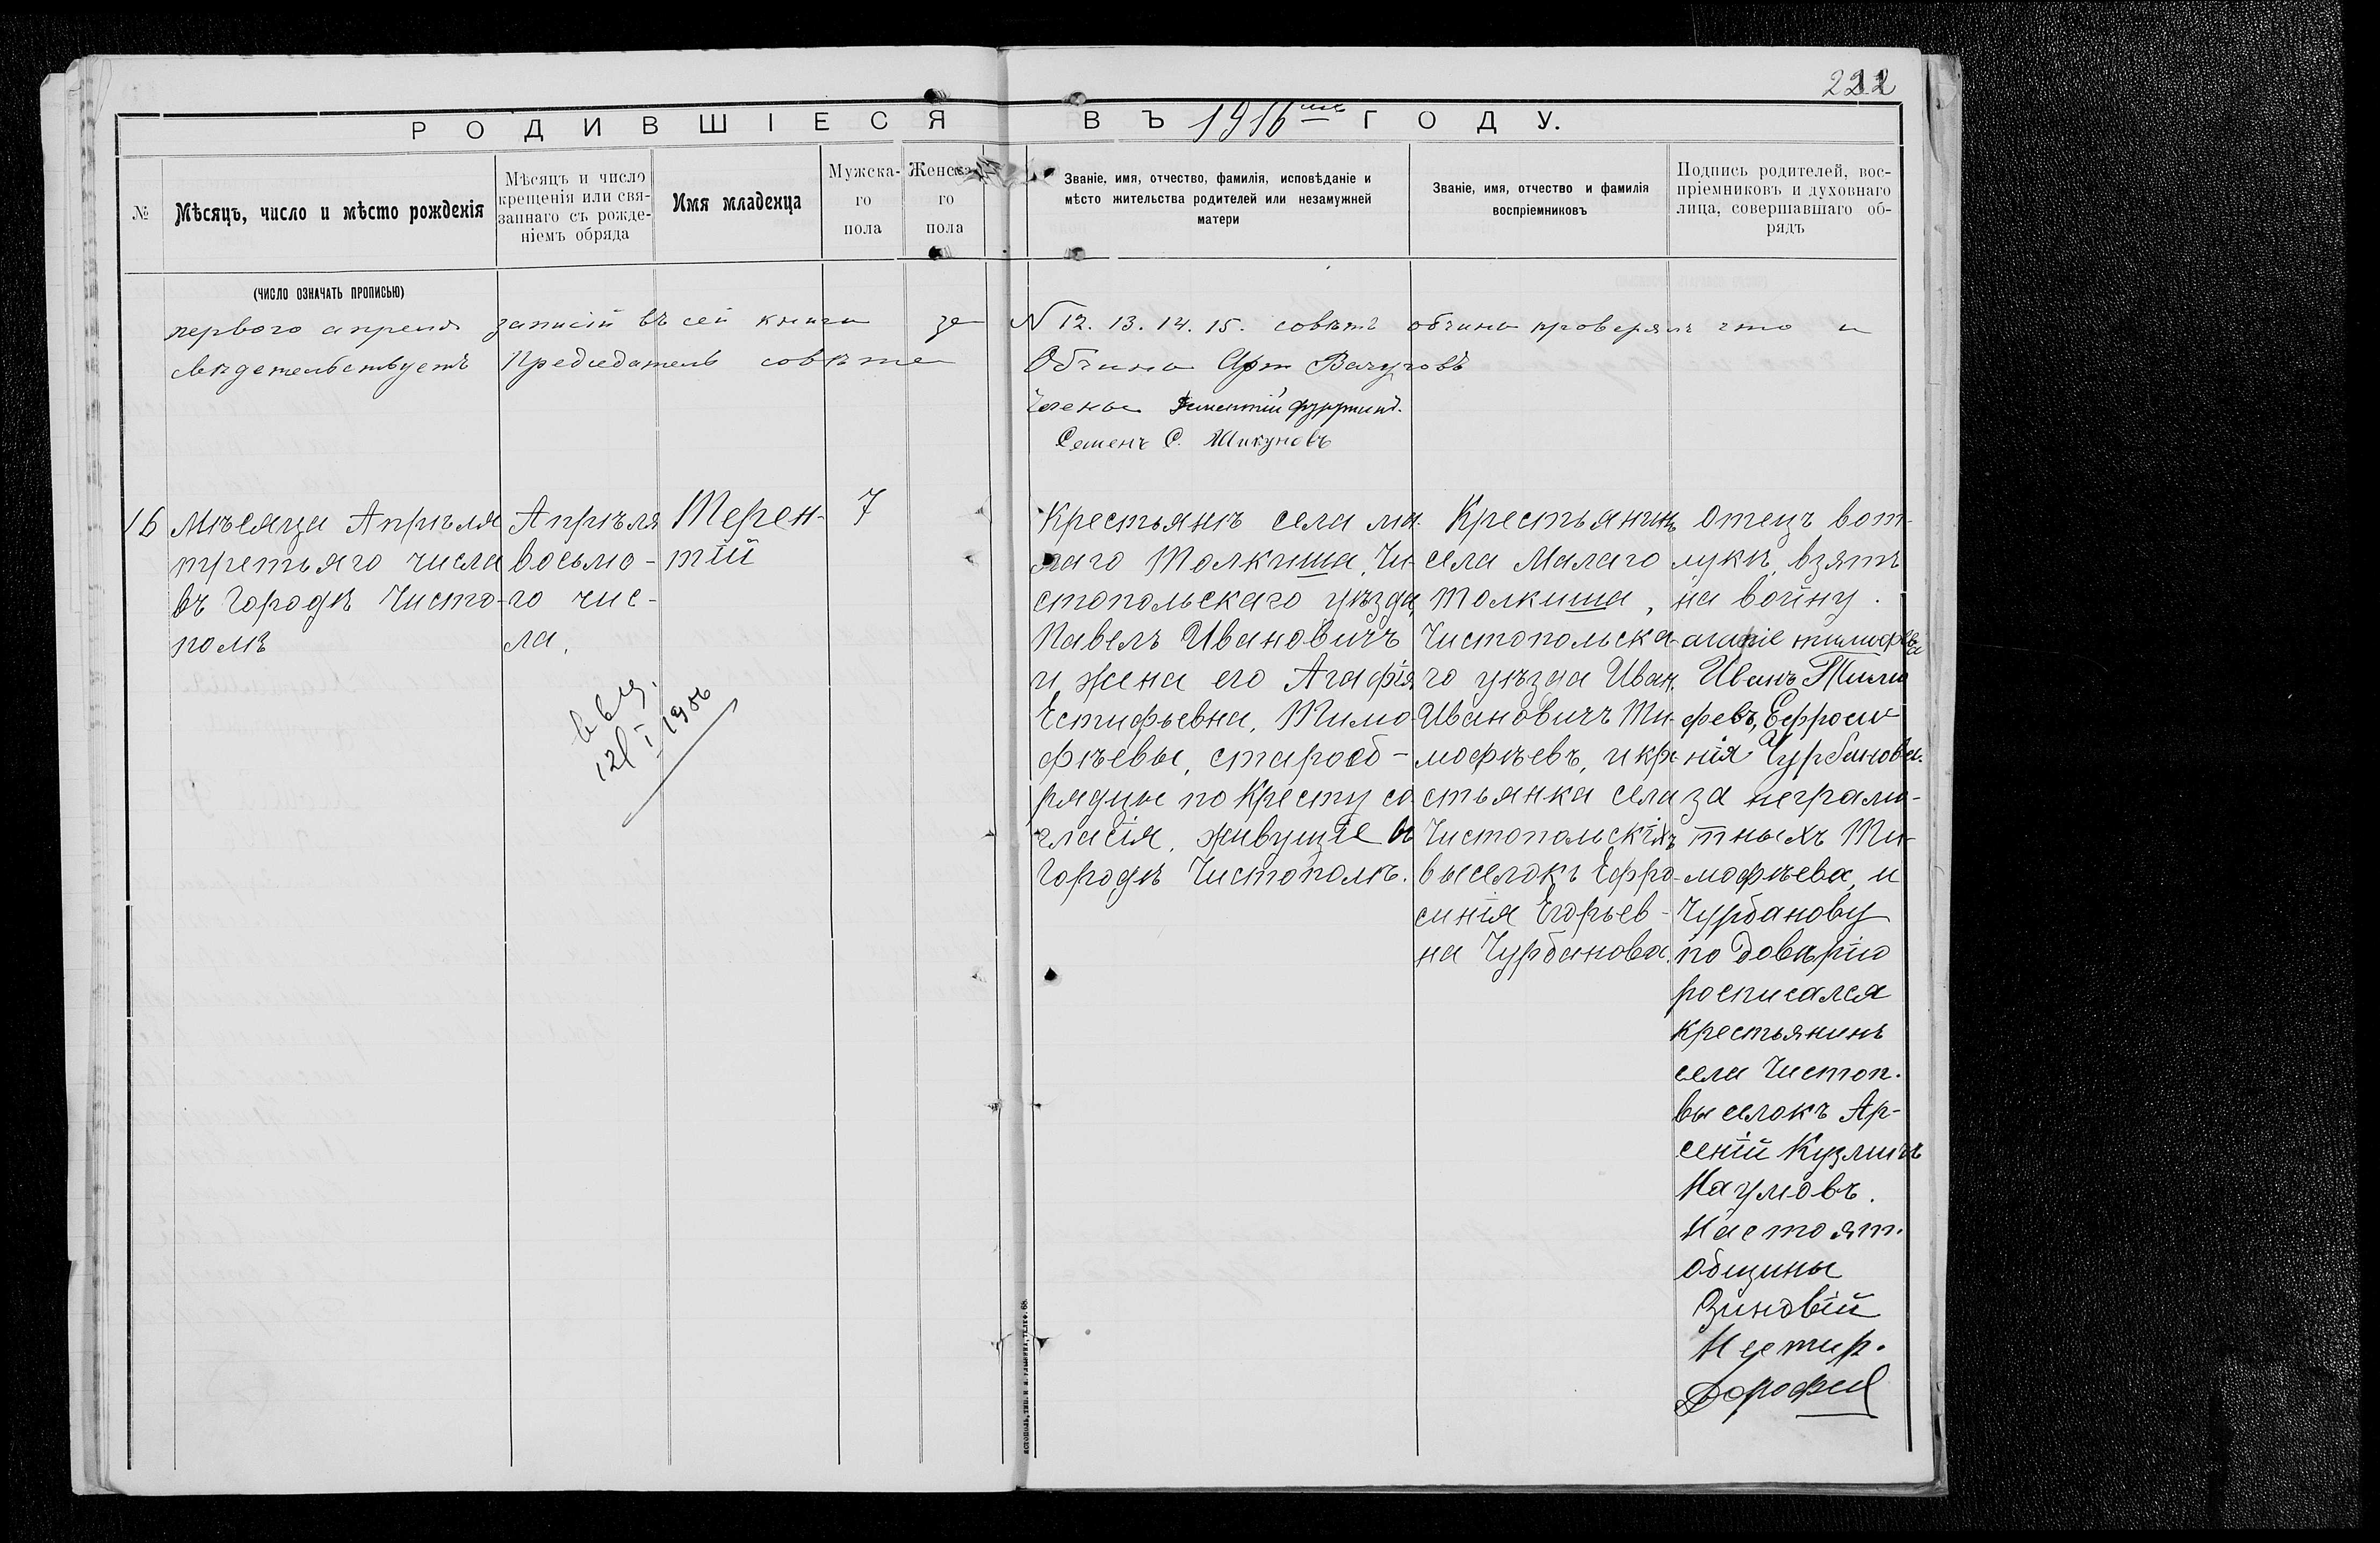 222
РОДИВШІЕСЯ ВЪ 1916мъ ГОДУ.
№
Мѣсяцъ, число и мѣсто рожденія
Мѣсяцъ и число
крещенія или свя-
заннаго съ рожде-
ніемъ обряда
Имя младенца
Мужска-
го
пола
Женска-
го
пола
Званіе, имя, отчество, фамилія, исповѣданіе и
мѣсто жительства родителей или незамужней
матери
Званіе, имя, отчество и фамилія
воспріемниковъ
Подпись родителей, вос-
пріемниковъ и духовнаго
лица, совершавшаго об-
рядъ
(ЧИСЛО ОЗНАЧАТЬ ПРОПИСЬЮ)
первого апреля записій въ сей книги за N 12. 13. 14. 15. совѣтъ обчины проверялъ что и
свѣдетельствуетъ Председатель совѣта Обчины Арт Вачуговъ
Члены
Семенъ С. Шикуновъ
16
Мѣсяца Апрѣля
третьяго числа
въ Городѣ Чисто-
полѣ
Апрѣля
восьмо-
го чис-
ла.
Терен-
тій
7
12/I 1986
Крестьянѣ села ма-
лаго Толкиша, Чи-
стопольскаго уѣзда,
Павелъ Ивановичъ
и жена его Агафія
Естифьевна, Тимо-
фѣевы, старооб-
рядцы по Кресту со-
гласія, живущіе въ
Городѣ Чистополѣ.
Крестьянинъ
села Малаго
Толкиша,
Чистопольска-
го уѣзда Иван.
Ивановичъ Ти-
мофѣевъ, и кре-
стьянка села
Чистопольскіхъ
выселокъ Ефро-
синія Егорьев-
на Чурбанова.
Отецъ вот-
лукѣ, взятъ
на войну.
Иванъ Тимо
февъ, Ефроси
нія Чурбанова.
за неграмо-
тныхъ Ти-
мофѣева, и
Чурбанову
по довѣрію
росписался
крестьянинъ
села Чистоп.
выселокъ Ар-
сеній Кузмичъ
Наумовъ.
Настоят.
общины
Зиновій
Нестер.
Дорофеев